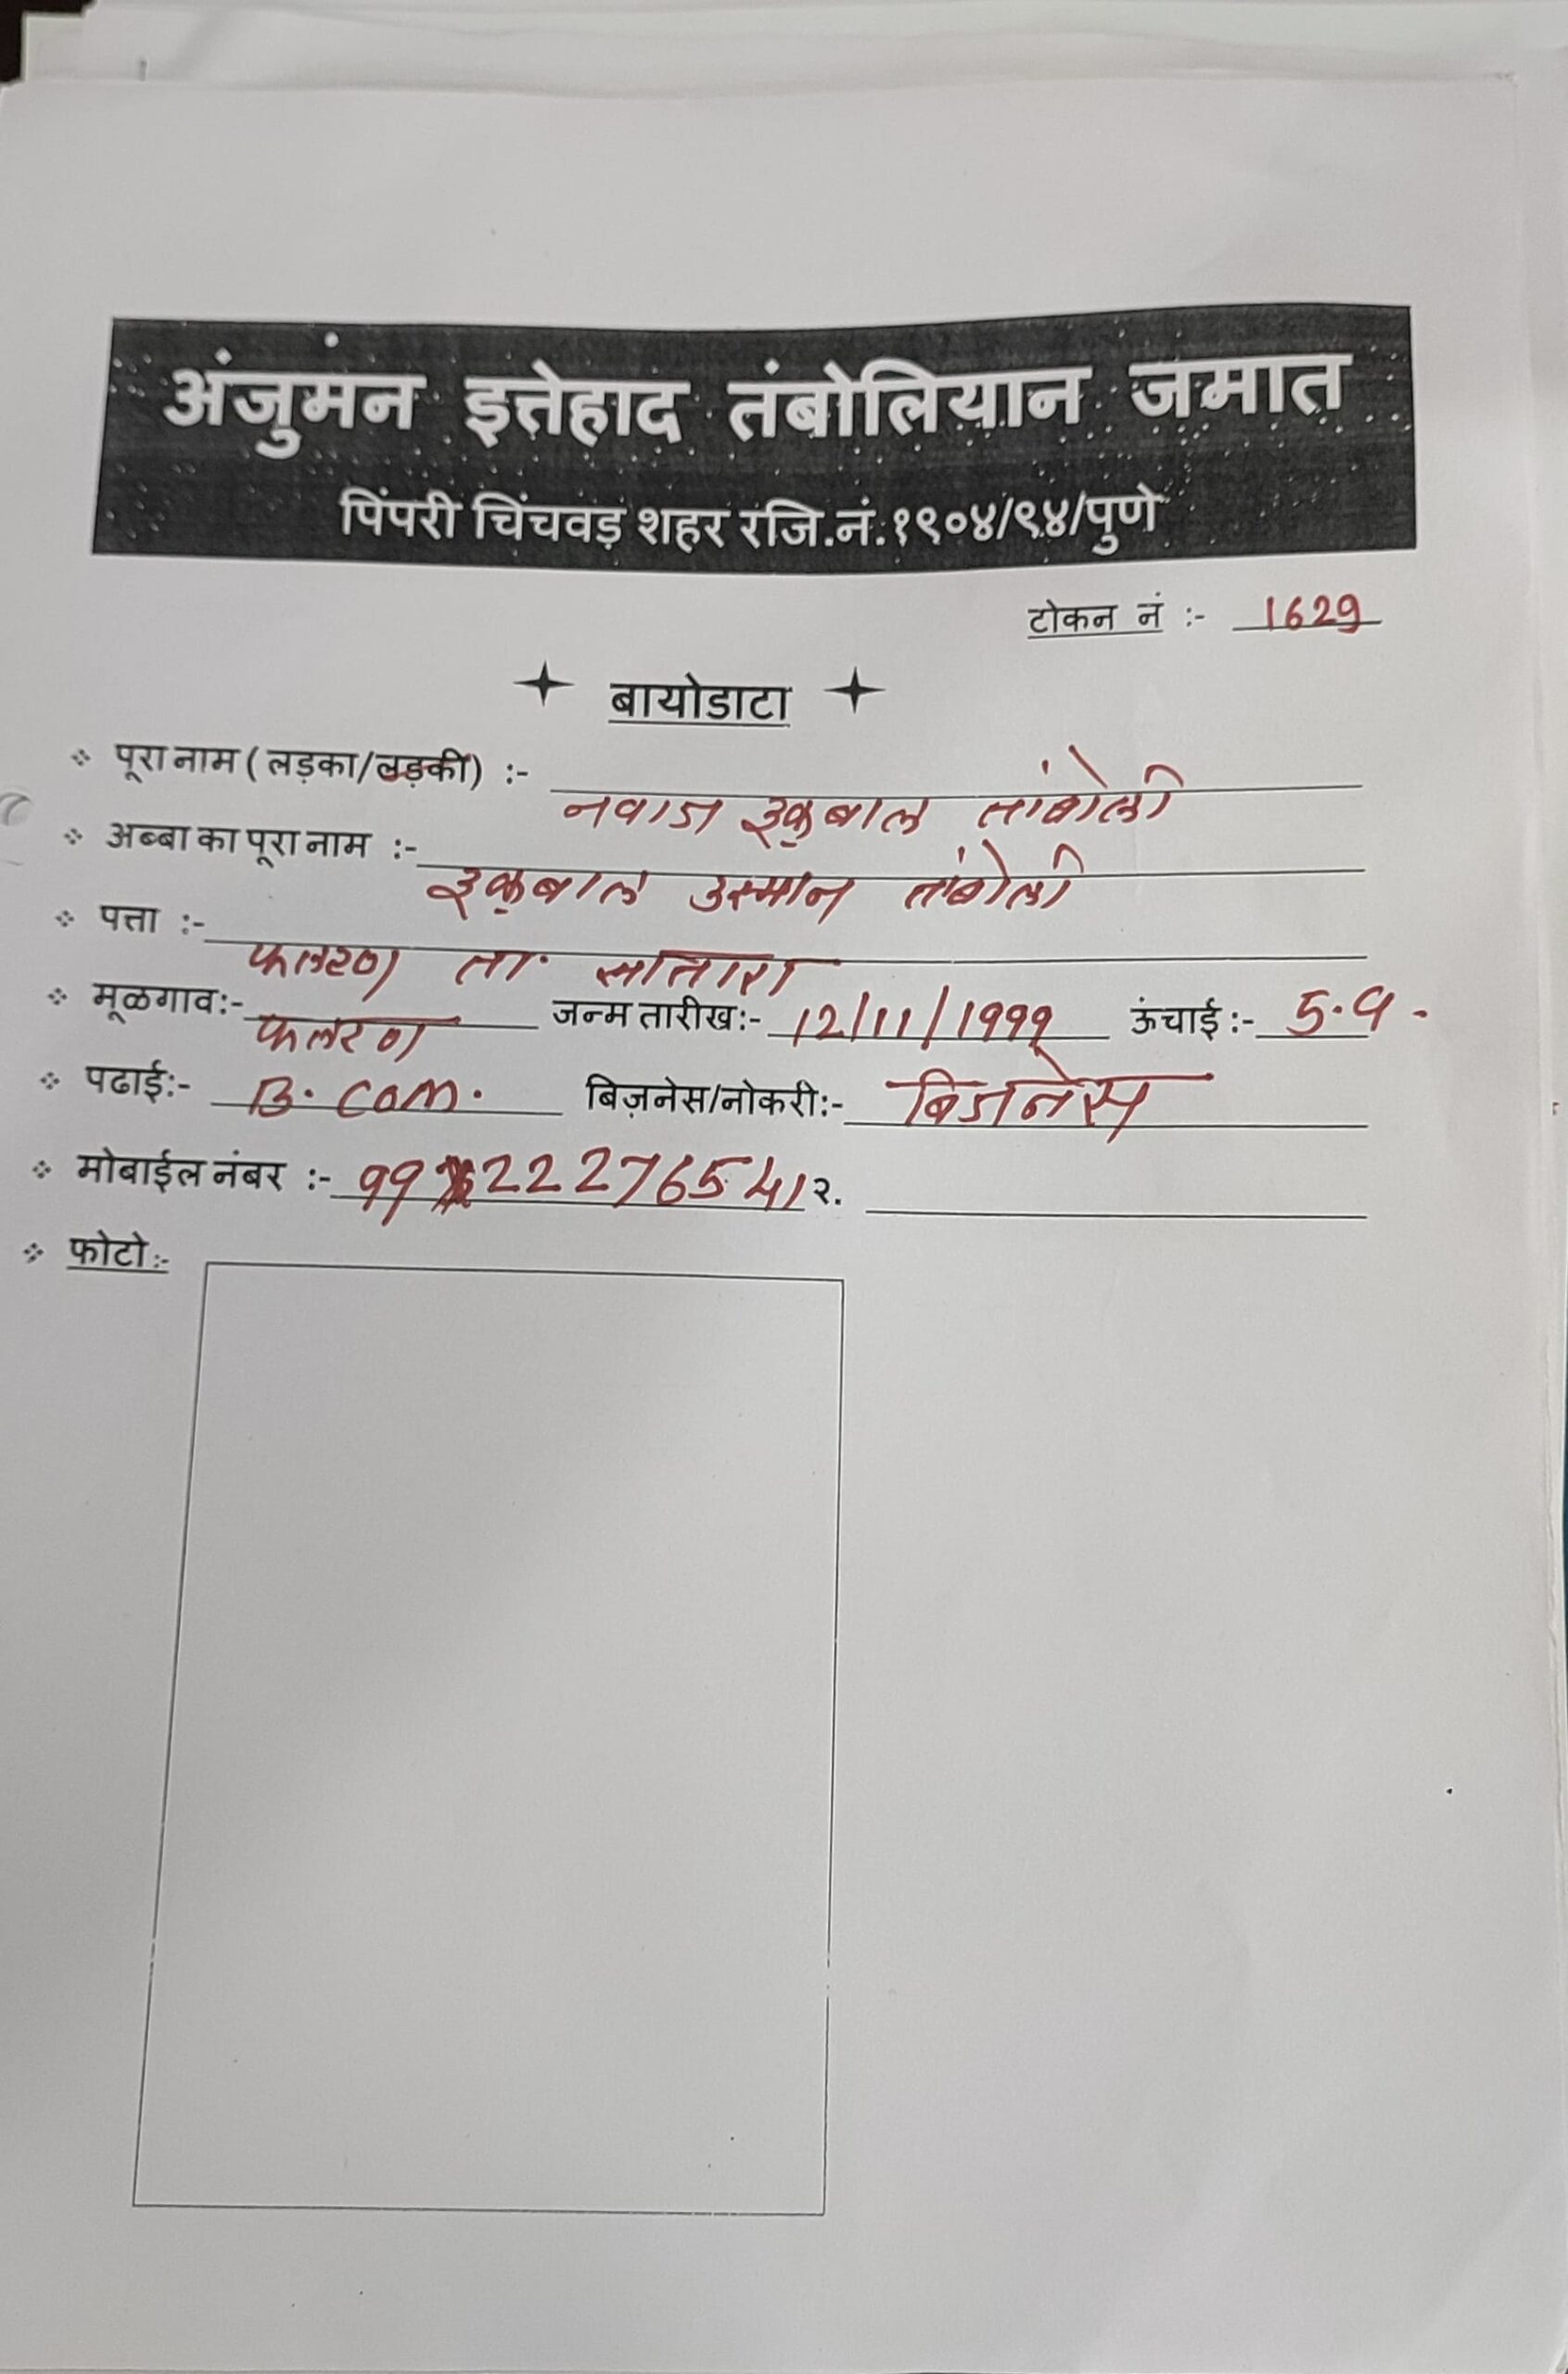 अंजुमंन इत्तेहाद तंबोलियान जमात
पिंपरी चिंचवड़ शहर रजि.नं.१९०४/९४/पुणे
टोकन नं :- 1629
बायोडाटा
पूरा नाम ( लड़का/लड़की) :- नवाज इक़बाल तांबोली
अब्बा का पूरा नाम :- इक़बाल उस्मान तांबोली
पत्ता :- फलटण ता. सातारा
मूळगाव:- फलटण जन्म तारीख:- 12/11/1999 ऊंचाई :- 5.9.
पढाई:- B. com. बिज़नेस/नोकरी:- बिजनेस
मोबाईल नंबर :- 99 222765 41 २.
फोटो:-